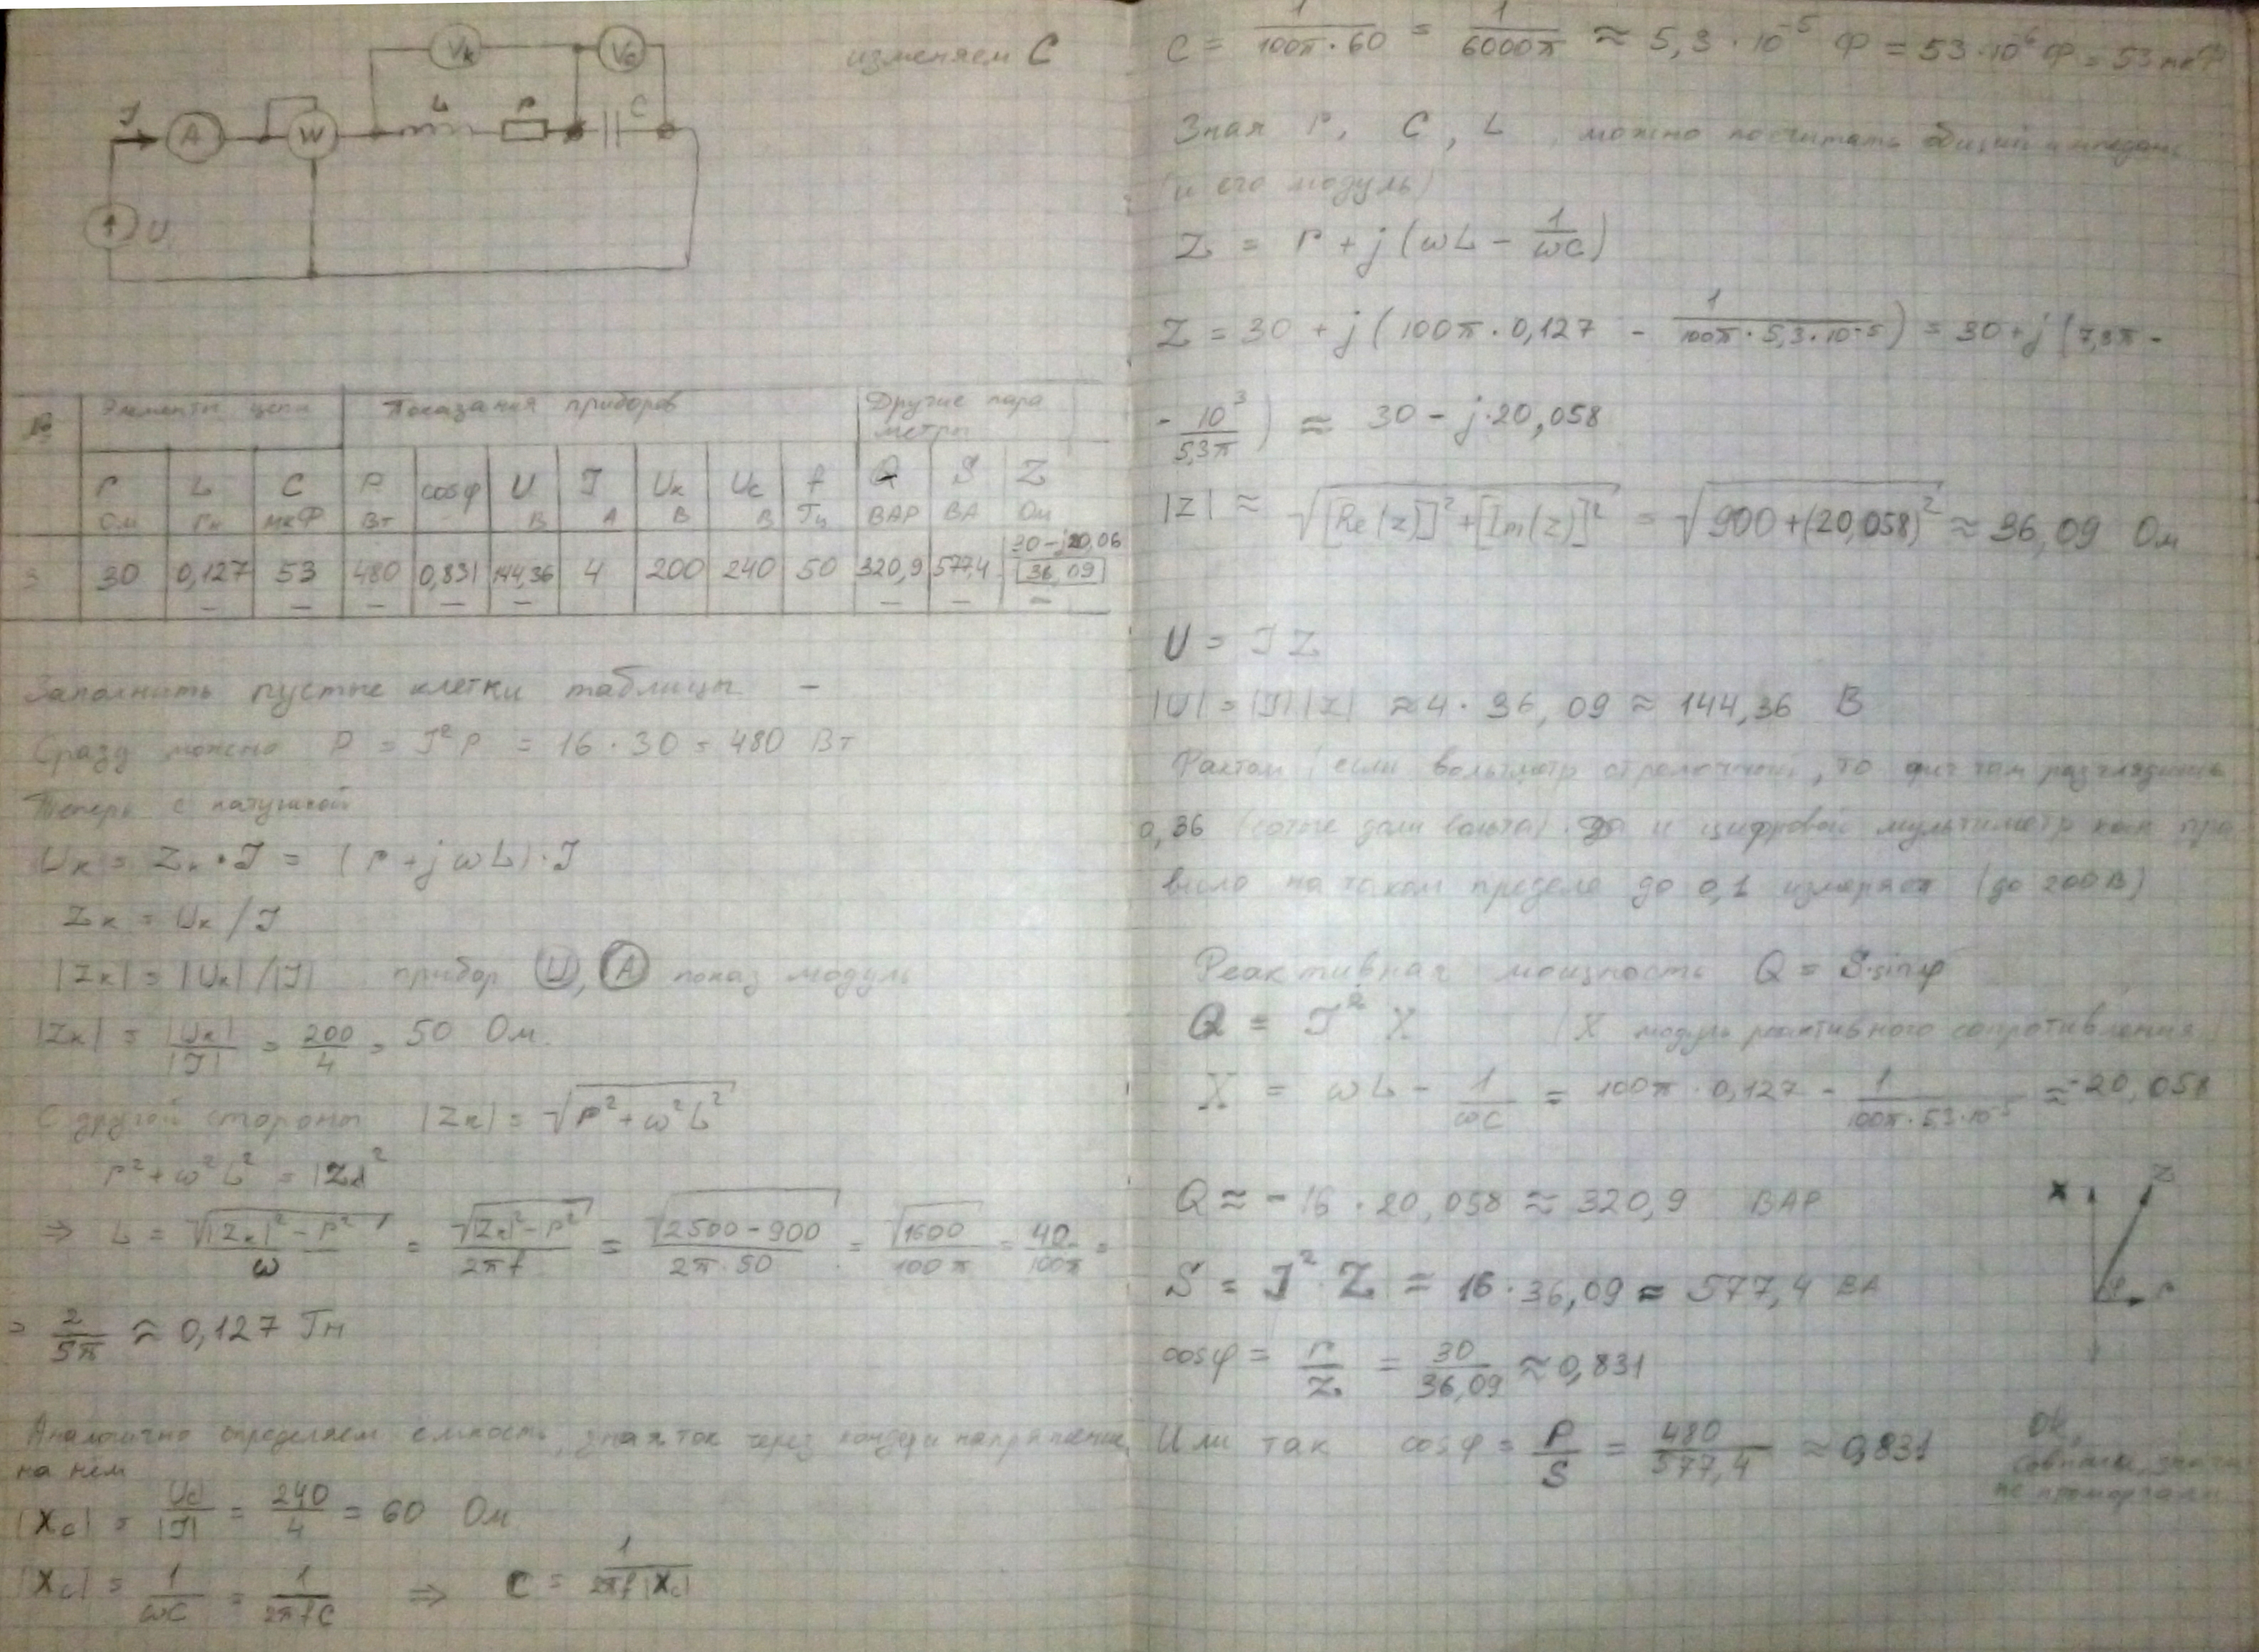 изменяем C
Vк Vc
J A W L r C
U
№ Элементы цепи Показания приборов Другие пара
метры
r L C P cosφ U J Uк Uc f Q S Z
Ом Гн мкФ Вт В А В В Гц ВАР ВА Ом
30-j20,06
3 30 0,127 53 480 0,831 144,36 4 200 240 50 320,9 577,4 36,09
— — — — — — — —
Заполнить пустые клетки таблицы —
Сразу можно P = J²r = 16 · 30 = 480 Вт
Теперь с катушкой
Uк = Zк · J = (r + jωL) · J
Zк = Uк / J
|Zк| = |Uк| / |J| прибор U, A показ модуль
|Zк| = |Uк|/|J| = 200/4 = 50 Ом.
С другой стороны |Zк| = √(r² + ω²L²)
r² + ω²L² = |Zк|²
⇒ L = √(|Zк|² - r²)/ω = √(|Zк|² - r²)/2πf = √(2500 - 900)/2π·50 = √1600/100π = 40/100π =
= 2/5π ≈ 0,127 Гн
Аналогично определяем емкость, зная ток через конде и напряжение
на нем
|Xc| = |Uc|/|J| = 240/4 = 60 Ом
|Xc| = 1/ωC = 1/2πfC ⇒ C = 1/2πf|Xc|
C = 1/100π·60 = 1/6000π ≈ 5,3 · 10⁻⁵ Ф = 53·10⁻⁶ Ф = 53 мкФ
Зная r, C, L, можно посчитать общий импеданс
(и его модуль)
Z = r + j(ωL - 1/ωC)
Z = 30 + j(100π · 0,127 - 1/100π · 5,3·10⁻⁵) = 30 + j(7,3π -
- 10³/5,3π) ≈ 30 - j·20,058
|Z| ≈ √([Re(z)]² + [Im(z)]²) = √(900 + (20,058)²) ≈ 36,09 Ом
U = J Z
|U| = |J| |Z| ≈ 4 · 36,09 ≈ 144,36 В
если вольтметр стрелочный, то фиг там разглядишь
0,36 (сотые доли вольта). Да и цифровой мультиметр как пра
вило на таком пределе до 0,1 измеряет (до 200 В)
Реактивная мощность Q = S·sinφ
Q = J² X (X модуль реактивного сопротивления
X = ωL - 1/ωC = 100π · 0,127 - 1/100π·5,3·10⁻⁵ ≈ -20,058
Q ≈ -16 · 20,058 ≈ 320,9 ВАР
x Z φ r
S = J² Z = 16 · 36,09 = 577,4 ВА
cosφ = r/Z = 30/36,09 ≈ 0,831
Или так cosφ = P/S = 480/577,4 ≈ 0,831
Ok,
совпали, значит
не проморгали